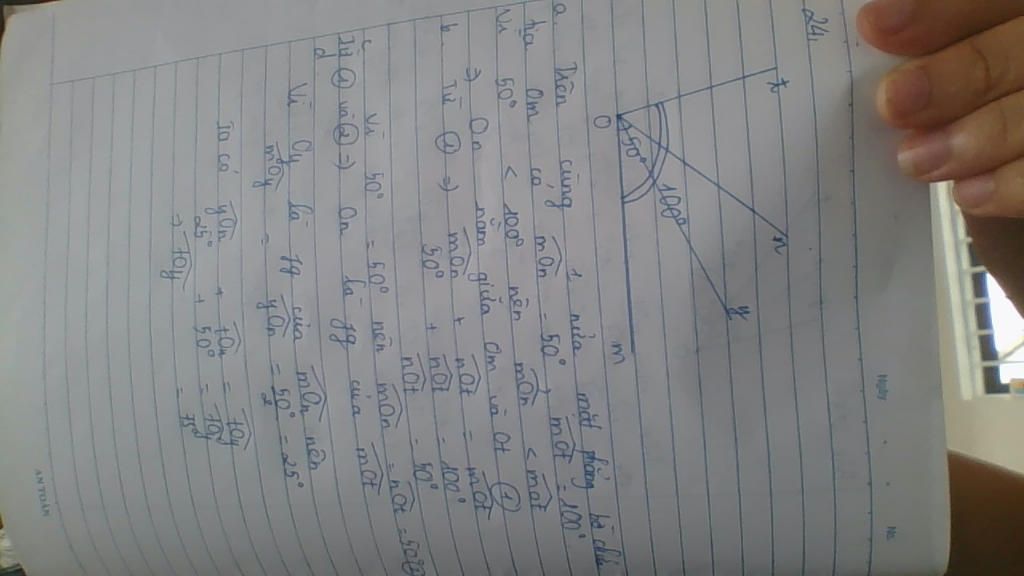 24,
t
n
y
O
50°
100°
m
a. Trên cùng 1 nửa mặt phẳng bờ chứa
tia Om có mOn = 50°, mOt = 100°
Vì 50° < 100° nên mOn < mOt
⇒ On nằm giữa Om và Ot ①
b. Từ ① ⇒ mOn + nOt = mOt
50° + nOt = 100°
nOt = 50°
c. Vì 50° = 50° nên mOn = nOt = 50° ②
Từ ① và ② ⇒ On là fg của mOt
d. Vì Oy là fg của mOn nên
mOy = yOn = 50°/2 = 25°
Ta có yOn + tOn = tOy
25° + 50° = tOy
⇒ tOy = 75°
Ngày
No.
ANTOAN